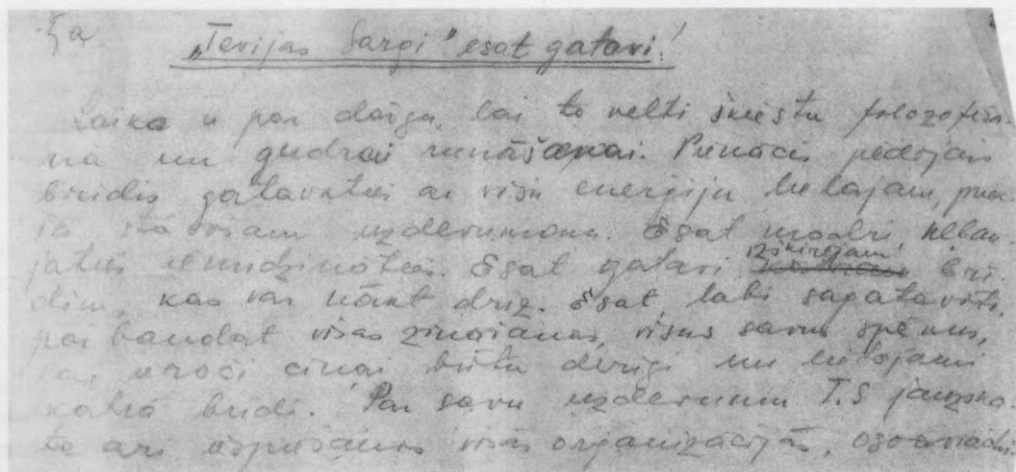 5a
„Tevijas Sargi" esat gatavi!
Laiks ir par dārgu, lai to veltī šķiestu filozofēša-
na un gudrai runāšanai. Pienācis pēdējais
brīdis gatavoties ar visu energiju lielajam, priek-
šā stāvošam uzdevumam. Esat modri, neļau-
jaties iemidzinoties. Esat gatavi izšķirošam brī-
dim, kas var nākt drīz. Esat labi sagatavoti,
pārbaudat visas zināšanas, visus savus spēkus,
lai cīnai būtu derīgi un lietojami
katrā brīdi. Par savu uzdevumu T.S
arī visās organizācijās,